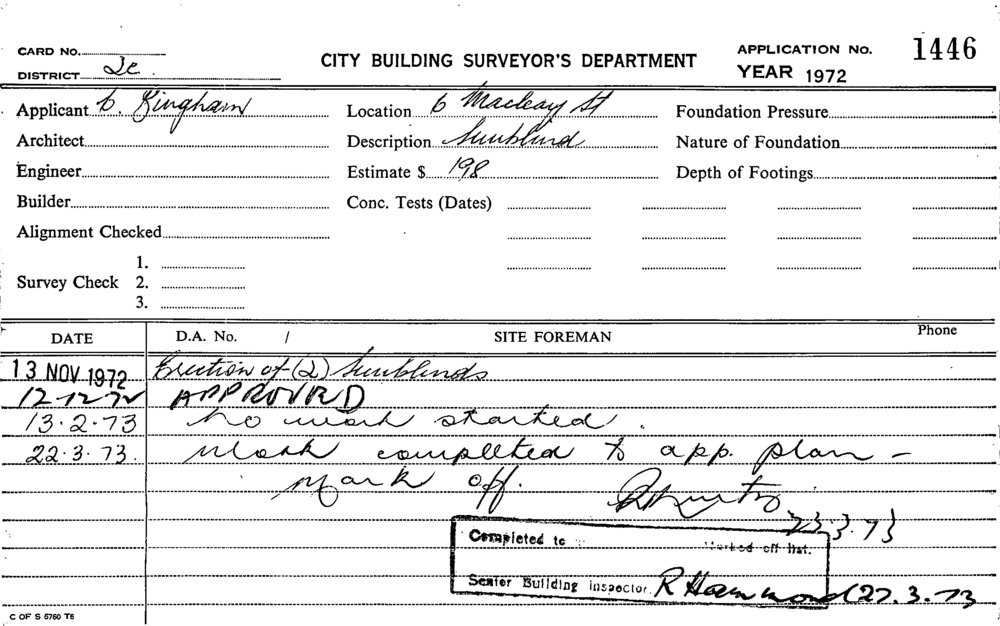 CARD No.
DISTRICT 2c.
CITY BUILDING SURVEYOR'S DEPARTMENT
APPLICATION No. 1446
YEAR 1972
Applicant C. Bingham
Location 6 Macleay St
Foundation Pressure
Architect
Description Sunblind
Nature of Foundation
Engineer
Estimate $ 198
Depth of Footings
Builder
Conc. Tests (Dates)
Alignment Checked
Survey Check 1.
2.
3.
DATE D.A. No. / SITE FOREMAN Phone
13 NOV 1972 Erection of (2) Sunblinds
12-12-72 APPROVED
13.2.73 No work started.
22.3.73. Work completed to app. plan -
Mark off.
23.3.73
Completed to Marked off list.
Senior Building Inspector. R Hammond 27.3.73
C OF S 6760 T6